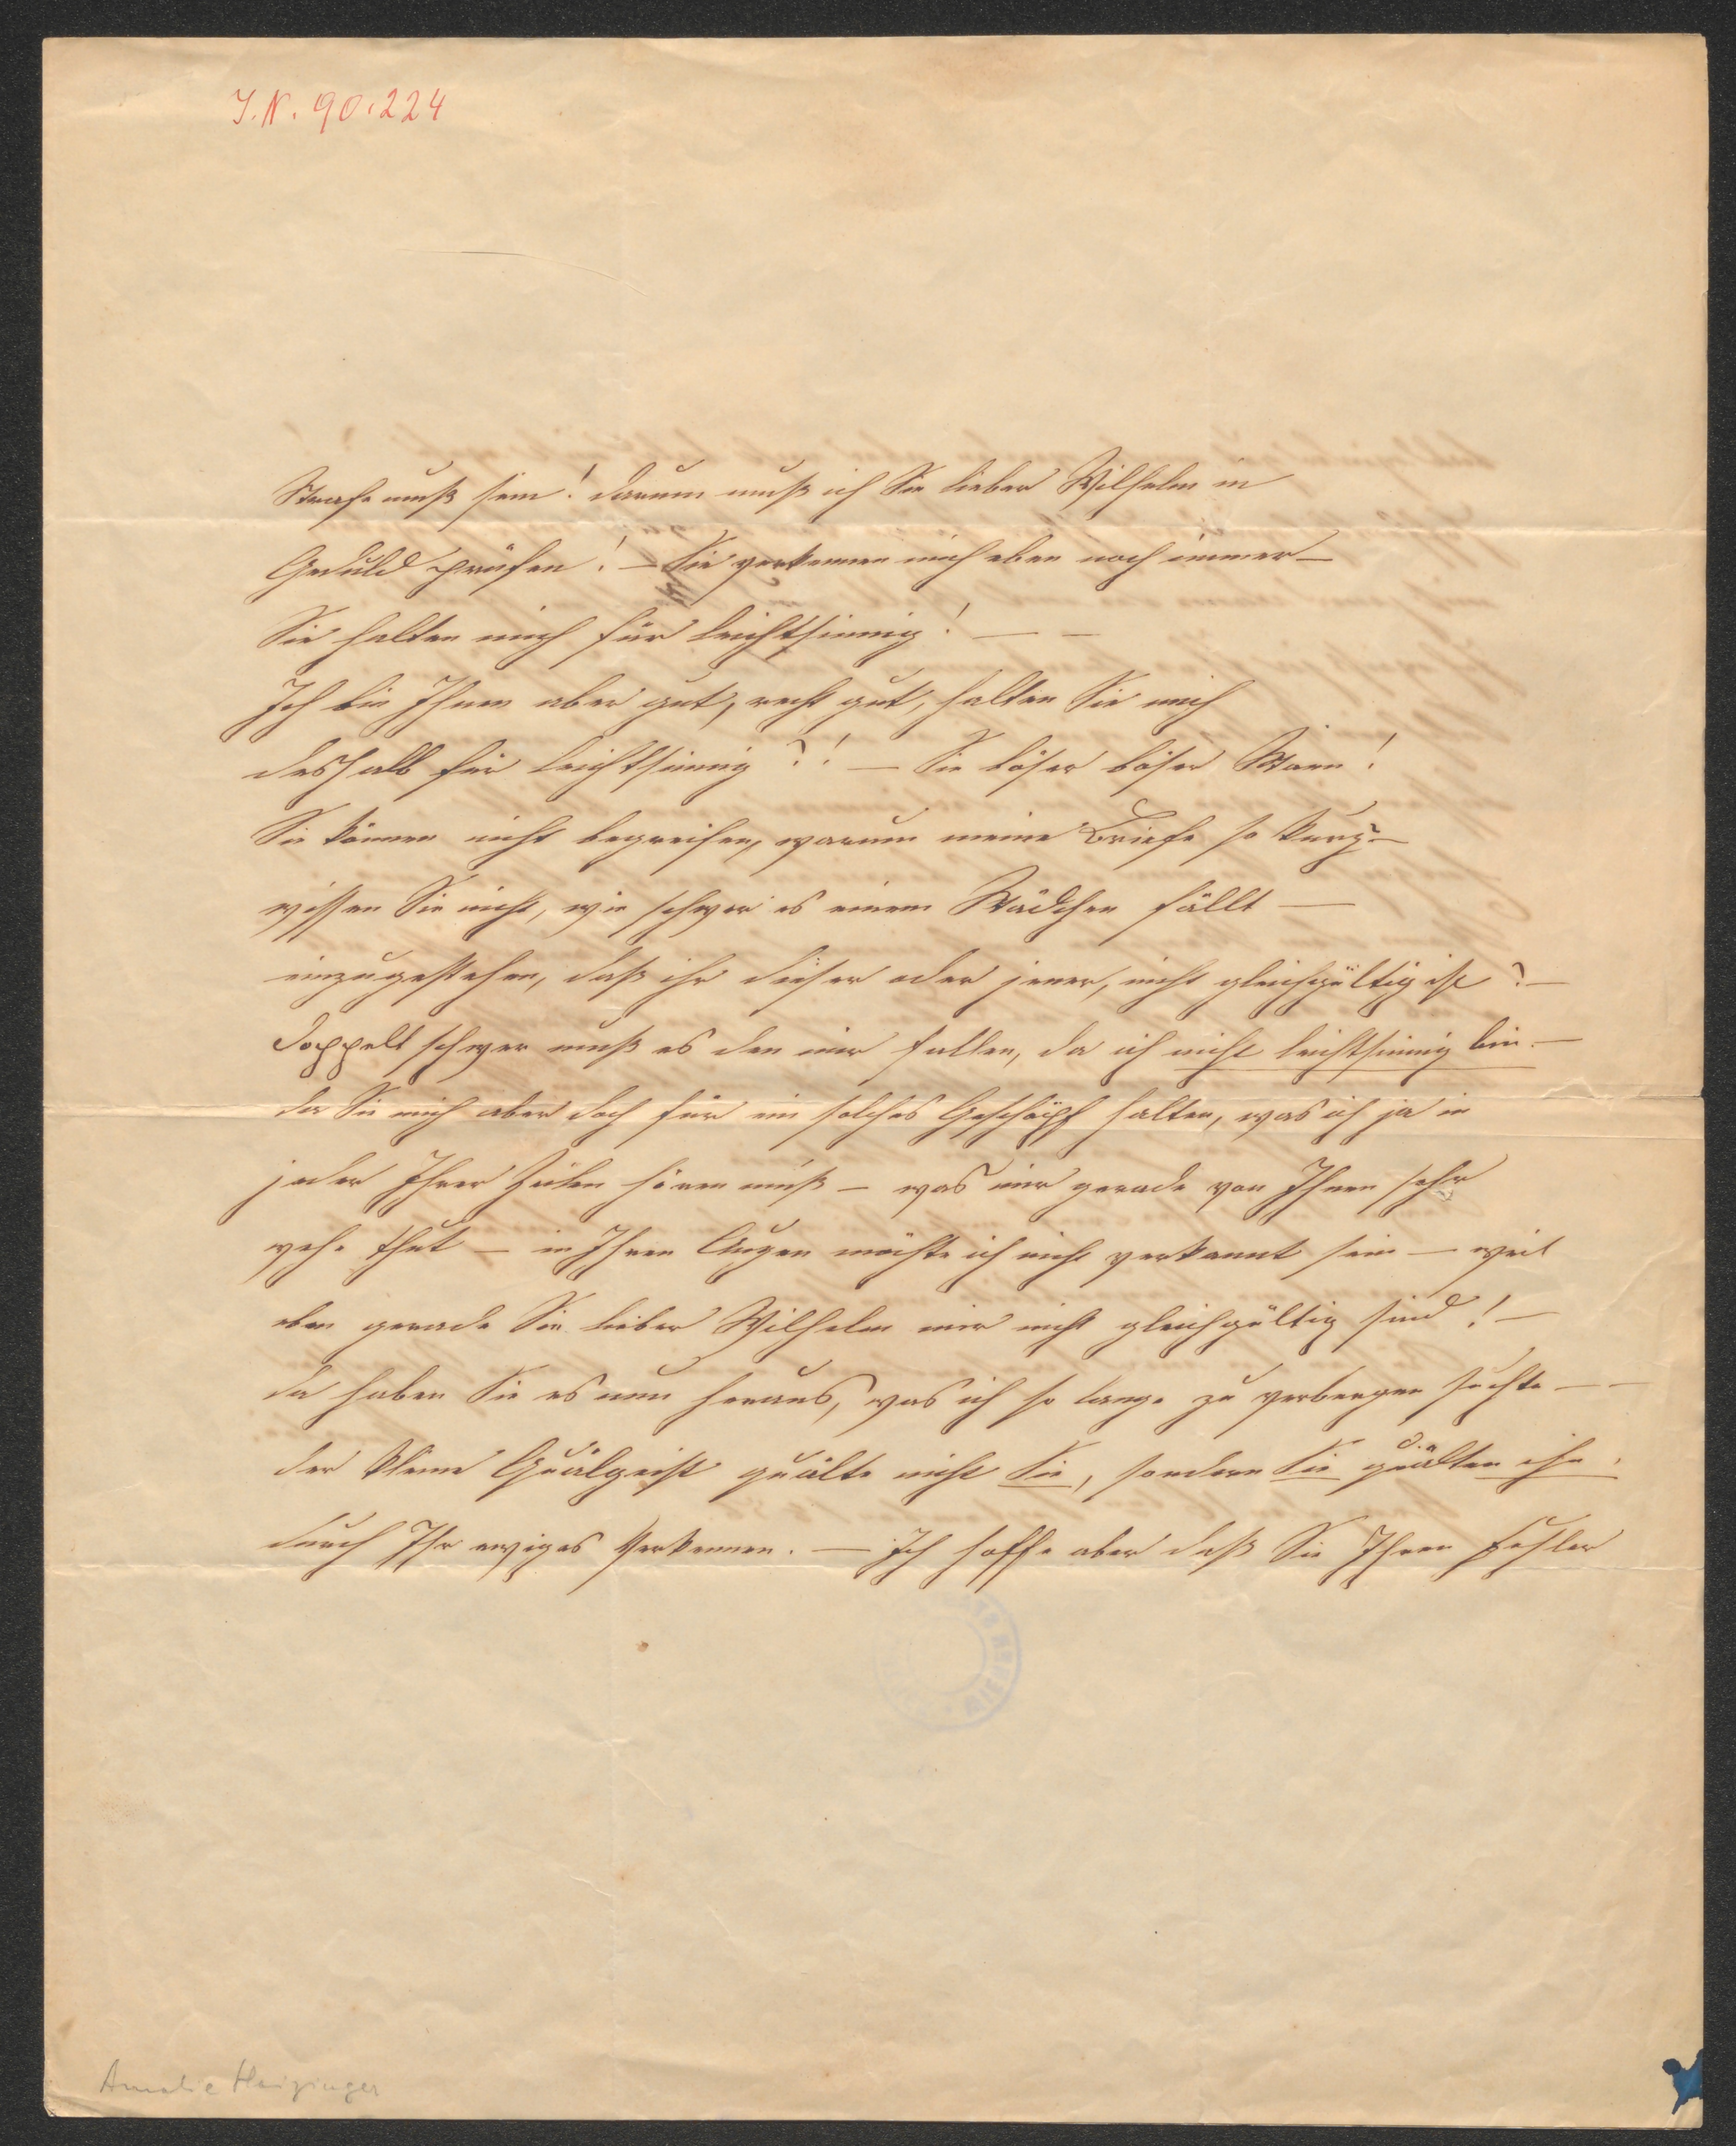 I.N. 90.224
Strafe muß sein! darum muß ich Sie lieber Wilhelm in
Geduld prüfen! — Sie verkennen mich eben noch immer —
Sie halten mich für leichtsinnig! — —
Ich bin Ihnen aber gut, recht gut, halten Sie mich
deshalb für leichtsinnig?! — Sie böser böser Mann!
Sie können nicht begreifen, warum meine Briefe so kurz? —
wissen Sie nicht, wie schwer es einem Mädchen fällt —
einzugestehen, daß ihr dieser oder jener, nicht gleichgültig ist? —
Doppelt schwer muß es den mir fallen, da ich nicht leichtsinnig bin. —
da Sie mich aber doch für ein solches Geschöpf halten, was ich ja in
jeder Ihrer Zeilen hören muß — was mir gerade von Ihnen sehr
wehe thut — in Ihren Augen möchte ich nicht verkannt sein — weil
eben gerade Sie lieber Wilhelm mir nicht gleichgültig sind! —
da haben Sie es nun heraus, was ich so lange zu verbergen suchte — —
der kleine Quälgeist quälte nicht Sie, sondern Sie quälten ihn.
durch Ihr ewiges Verkennen. — Ich hoffe aber daß Sie Ihren Fehler
Amalie Haizinger